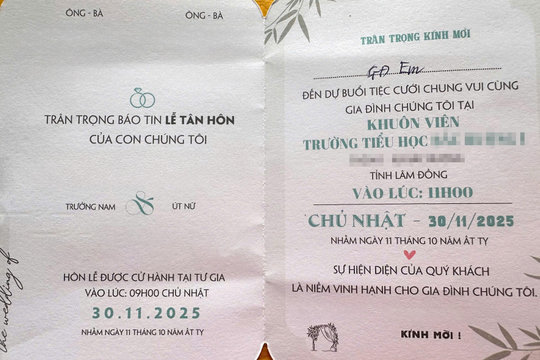 ÔNG - BÀ
ÔNG - BÀ
TRÂN TRỌNG BÁO TIN LỄ TÂN HÔN
CỦA CON CHÚNG TÔI
TRƯỞNG NAM
ÚT NỮ
HÔN LỄ ĐƯỢC CỬ HÀNH TẠI TƯ GIA
VÀO LÚC: 09H00 CHỦ NHẬT
30.11.2025
NHẰM NGÀY 11 THÁNG 10 NĂM ẤT TỴ
the wedding of
TRÂN TRỌNG KÍNH MỜI
GĐ Em
ĐẾN DỰ BUỔI TIỆC CƯỚI CHUNG VUI CÙNG
GIA ĐÌNH CHÚNG TÔI TẠI
KHUÔN VIÊN
TRƯỜNG TIỂU HỌC
TỈNH LÂM ĐỒNG
VÀO LÚC: 11H00
CHỦ NHẬT - 30/11/2025
NHẰM NGÀY 11 THÁNG 10 NĂM ẤT TỴ
SỰ HIỆN DIỆN CỦA QUÝ KHÁCH
LÀ NIỀM VINH HẠNH CHO GIA ĐÌNH CHÚNG TÔI.
KÍNH MỜI !